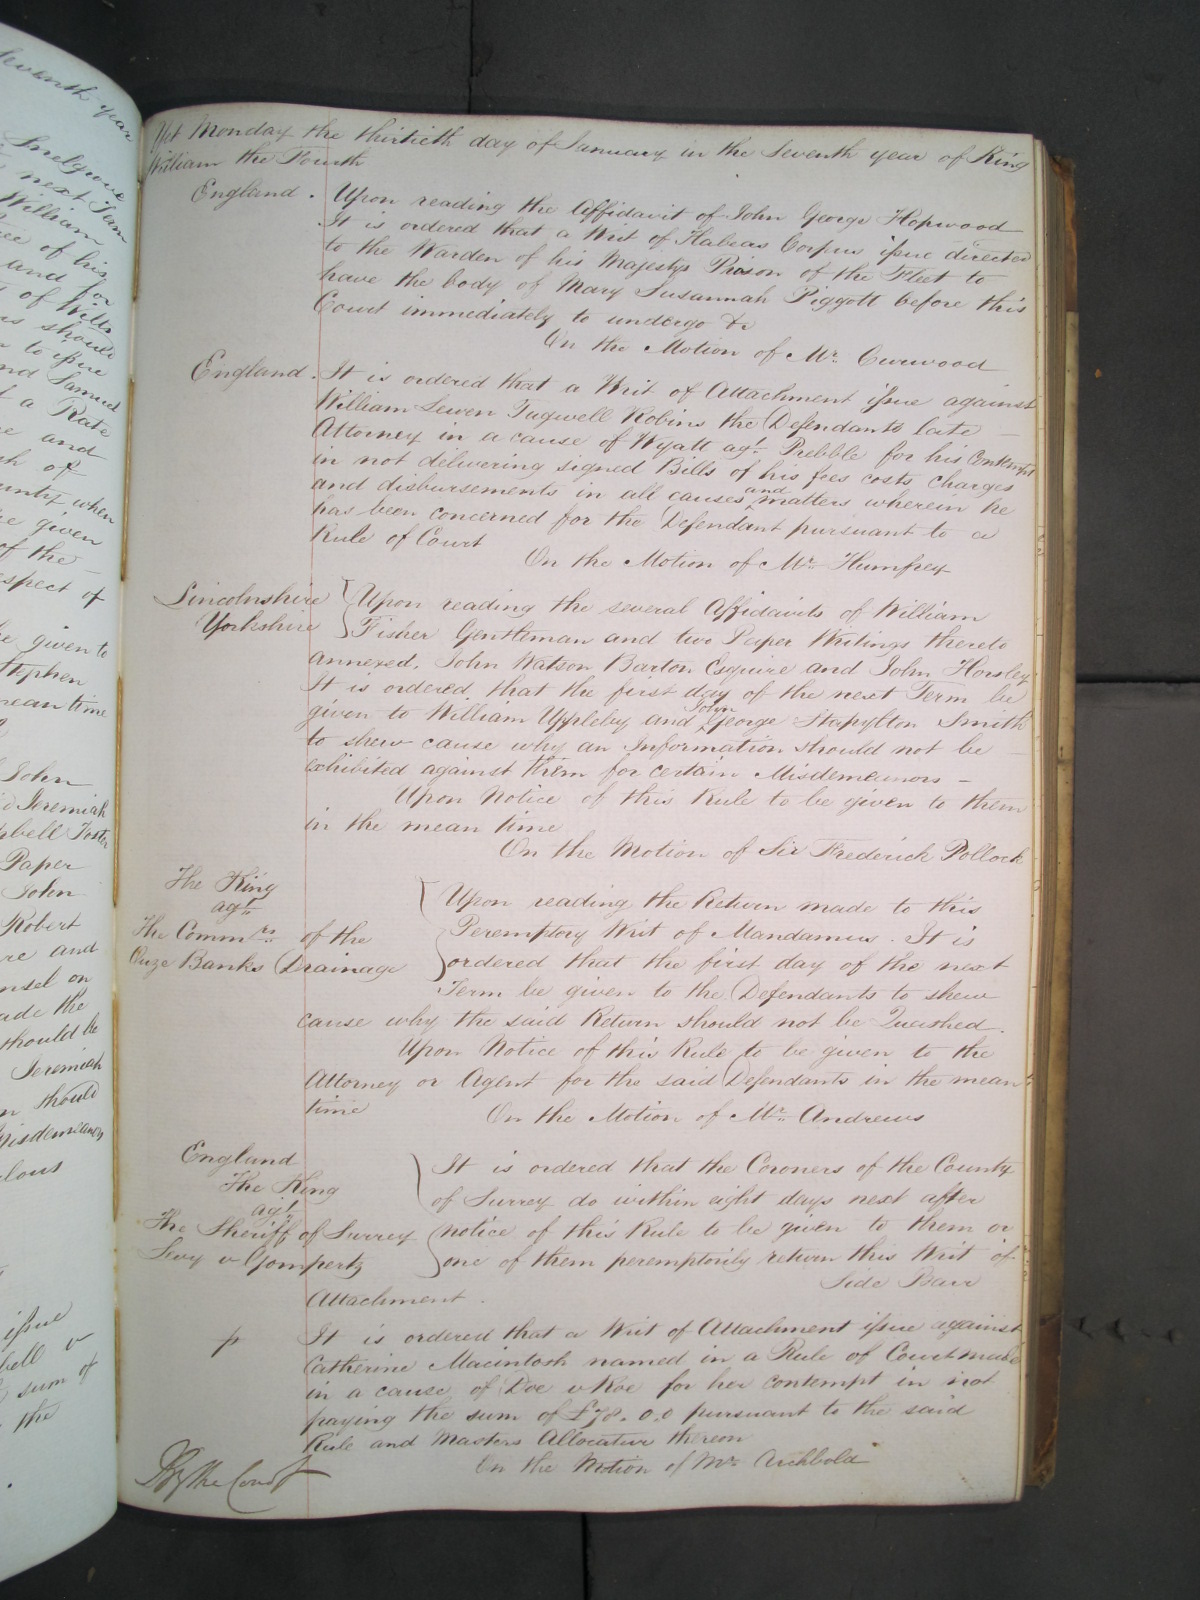 Yet Monday the thirtieth day of January in the Seventh year of King
William the Fourth
England. Upon reading the Affidavit of John George Hopwood
It is ordered that a Writ of Habeas Corpus issue directed
to the Warden of his Majestys Prison of the Fleet to
have the body of Mary Susannah Piggott before this
Court immediately to undergo &c
On the Motion of Mr. Curwood
England. It is ordered that a Writ of Attachment issue against
William Lewen Tugwell Robins the Defendants late
Attorney in a cause of Wyatt agt. Prebble for his Contempt
in not delivering signed Bills of his fees costs charges
and disbursements in all causes and matters wherein he
has been concerned for the Defendant pursuant to a
Rule of Court
On the Motion of Mr. Humfrey
Lincolnshire Upon reading the several Affidavits of William
Yorkshire Fisher Gentleman and two Paper Writings thereto
annexed, John Watson Barton Esquire and John Horsley
It is ordered that the first day of the next Term be
given to William Uppleby and John George Stapylton Smith
to shew cause why an Information should not be
exhibited against them for certain Misdemeanors
Upon Notice of this Rule to be given to them
in the mean time
On the Motion of Sir Frederick Pollock
The King
agt
The Commrs. of the
Ouze Banks Drainage
Upon reading the Return made to this
Peremptory Writ of Mandamus. It is
ordered that the first day of the next
Term be given to the Defendants to shew
cause why the said Return should not be Quashed.
Upon Notice of this Rule to be given to the
Attorney or Agent for the said Defendants in the mean
time
On the Motion of Mr. Andrews
England
The King
agt
The Sheriff of Surrey
Levy v Gompertz
It is ordered that the Coroners of the County
of Surrey do within eight days next after
notice of this Rule to be given to them or
one of them peremptorily return this Writ of
Attachment.
Side Barr
It is ordered that a Writ of Attachment issue against
Catherine Macintosh named in a Rule of Court made
in a cause of Doe v Roe for her contempt in not
paying the sum of £78.0.0 pursuant to the said
Rule and Masters Allocatur thereon
On the Motion of Mr. Archbold
By the Court